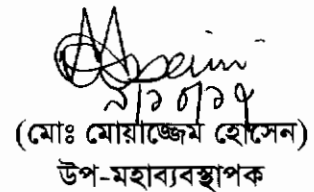 (মোঃ মোয়াজ্জেম হোসেন)
উপ-মহাব্যবস্থাপক